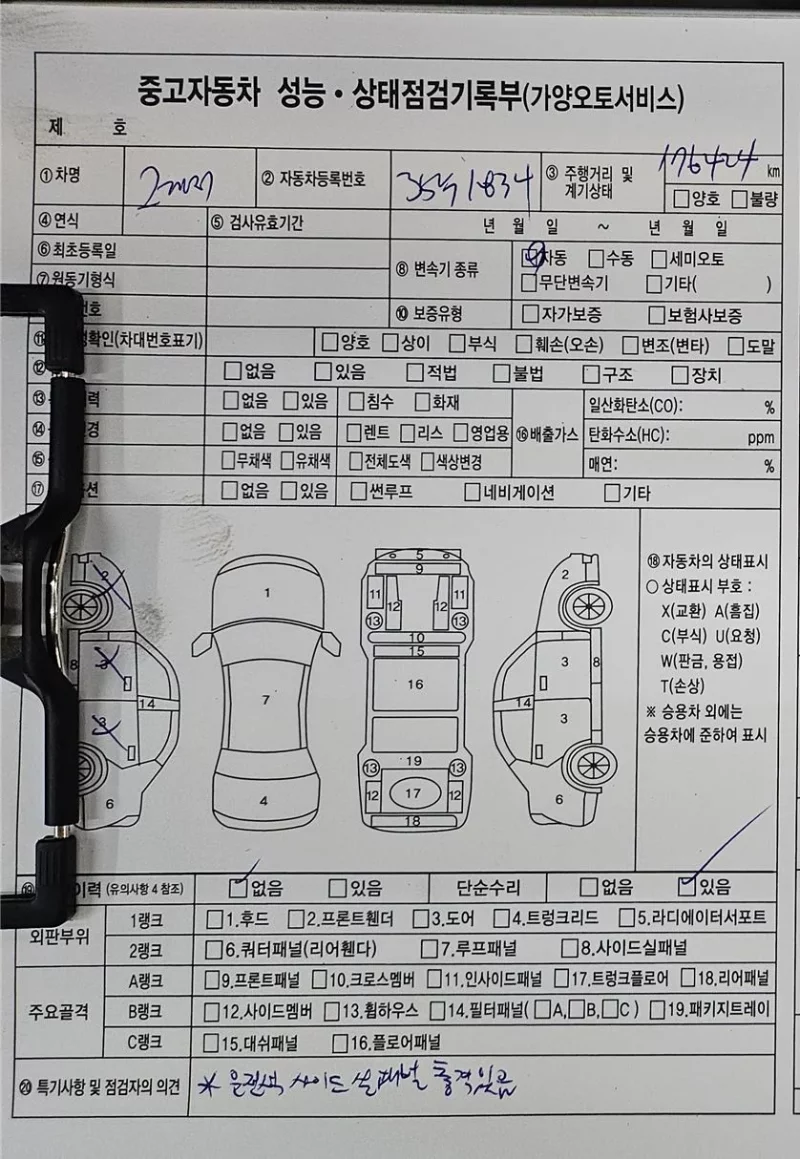 중고자동차 성능・상태점검기록부(가양오토서비스)
제 호
①차명 ② 자동차등록번호 1834 ③ 주행거리 및 계기상태 176424 km
□양호 □불량
④ 연식 ⑤ 검사유효기간 년 월 일 ~ 년 월 일
⑥ 최초등록일 ⑧ 변속기 종류 ☑자동 □수동 □세미오토
⑦원동기형식 □무단변속기 □기타( )
번호 ⑩ 보증유형 □자가보증 □보험사보증
⑪ 확인(차대번호표기) □양호 □상이 □부식 □훼손(오손) □변조(변타) □도말
⑫ □없음 □있음 □적법 □불법 □구조 □장치
⑬ 력 □없음 □있음 □침수 □화재 ⑯배출가스 일산화탄소(CO): %
⑭ 경 □없음 □있음 □렌트 □리스 □영업용 탄화수소(HC): ppm
⑮ □무채색 □유채색 □전체도색 □색상변경 매연: %
⑰ 션 □없음 □있음 □썬루프 □네비게이션 □기타
2 X 3 X 3 X 8 14 6
1 7 4
5 9 11 12 12 11 13 13 10 15 16 19 13 13 12 17 12 18
2 3 8 14 3 6
⑱ 자동차의 상태표시
○ 상태표시 부호 :
X(교환) A(흠집)
C(부식) U(요청)
W(판금, 용접)
T(손상)
※ 승용차 외에는
승용차에 준하여 표시
⑲ 이력 (유의사항 4 참조) ☑없음 □있음 단순수리 □없음 ☑있음
외판부위 1랭크 □1.후드 □2.프론트휀더 □3.도어 □4.트렁크리드 □5.라디에이터서포트
2랭크 □6.쿼터패널(리어휀다) □7.루프패널 □8.사이드실패널
주요골격 A랭크 □9.프론트패널 □10.크로스멤버 □11.인사이드패널 □17.트렁크플로어 □18.리어패널
B랭크 □12.사이드멤버 □13.휠하우스 □14.필터패널( □A,□B,□C ) □19.패키지트레이
C랭크 □15.대쉬패널 □16.플로어패널
⑳ 특기사항 및 점검자의 의견 * 운전석 사이드 실패널 충격있음